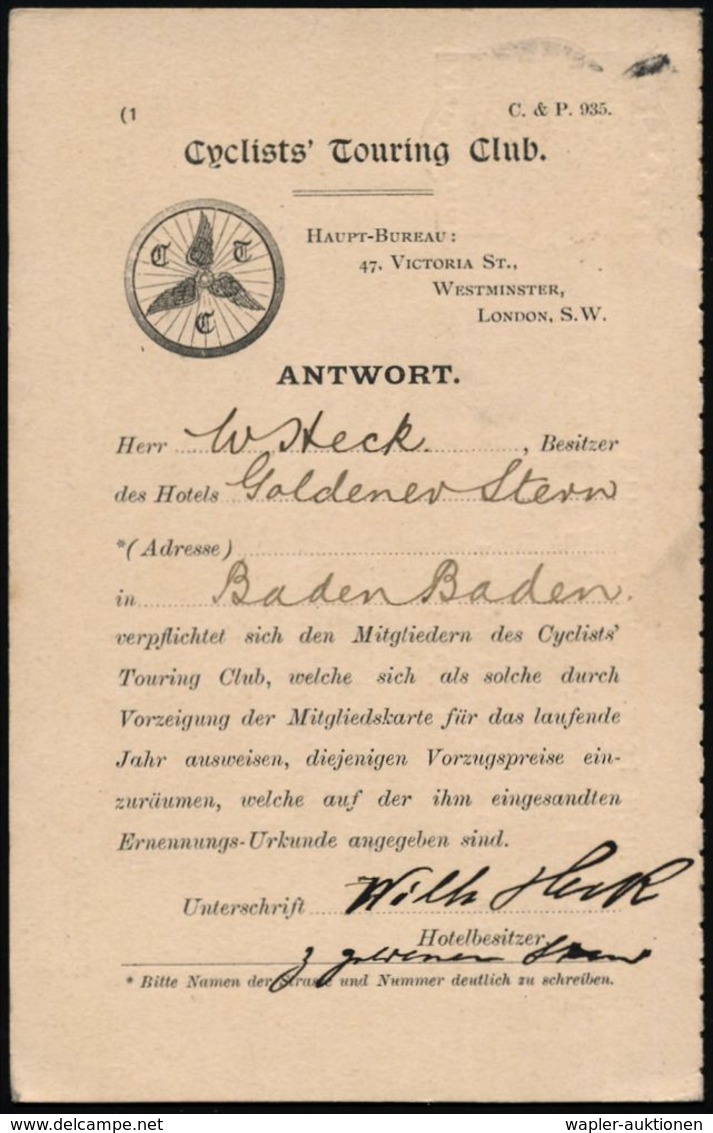 (1
C. & P. 935.
Cyclists' Touring Club.
C T C
HAUPT-BUREAU:
47, VICTORIA ST.,
WESTMINSTER,
LONDON, S.W.
ANTWORT.
Herr W Heck, Besitzer
des Hotels Goldener Stern
*(Adresse)
in Baden Baden.
verpflichtet sich den Mitgliedern des Cyclists'
Touring Club, welche sich als solche durch
Vorzeigung der Mitgliedskarte für das laufende
Jahr ausweisen, diejenigen Vorzugspreise ein-
zuräumen, welche auf der ihm eingesandten
Ernennungs-Urkunde angegeben sind.
Unterschrift Wilh Heck
Hotelbesitzer
z goldenen Stern
* Bitte Namen der Strasse und Nummer deutlich zu schreiben.
delcampe.net
wapler-auktionen